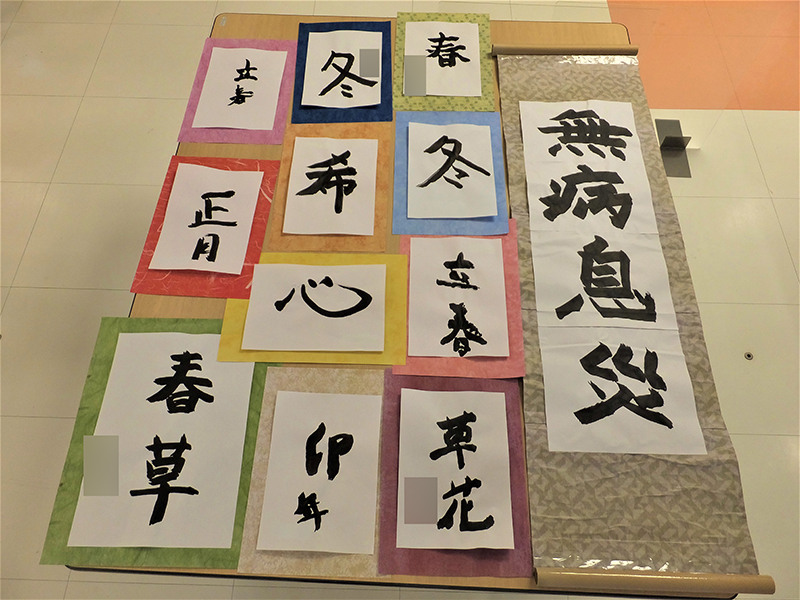 立春
冬
春
正月
希
冬
心
立春
春草
卯年
草花
無病息災